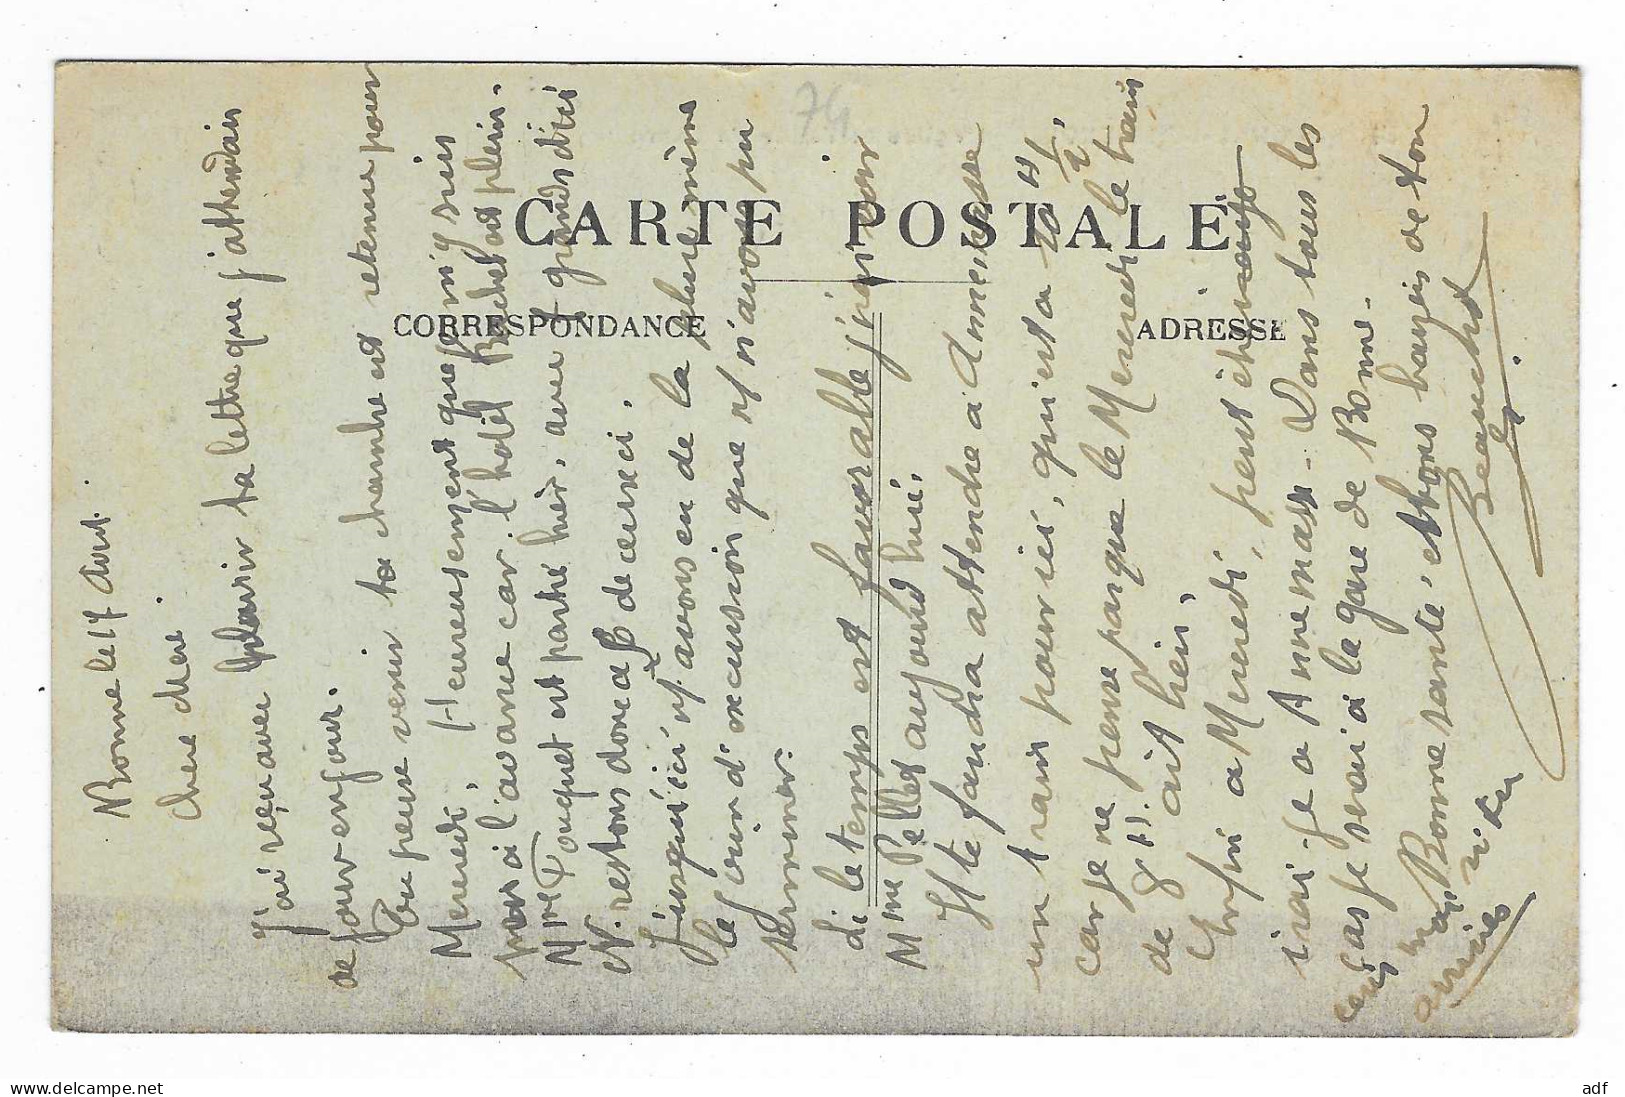 74
CARTE POSTALE
CORRESPONDANCE
ADRESSE
Bonne le 17 Aout.
Chere Mere.
J'ai reçu avec plaisir ta lettre que j'attendais
de jour en jour.
Tu peux venir ta chambre est retenue pour
Mercredi, Heureusement que je m'y suis
pris à l'avance car l'hotel Bochet est plein.
Mme Touquet est partie hier, avec 5 grands d'ici
N. restons donc a 5 de ceux ci.
Jusqu'ici ns avons eu de la pluie même
le jour d'excursion que ns n'avons pu
terminer.
Si le temps est favorable j'irai voir
Mme Pellet aujourd'hui.
Il te faudra attendre à Annemasse
un train pour ici, qui est a 10 H 1/2,
car je ne pense pas que le Mercredi le train
de 8 H. ait lieu,
Enfin a Mercredi, peut être
irai-je a Annemasse - Dans tous les
cas je serai à la gare de Bonne -
Bonne santé, et bons baisers de ton
Beauchot
adf